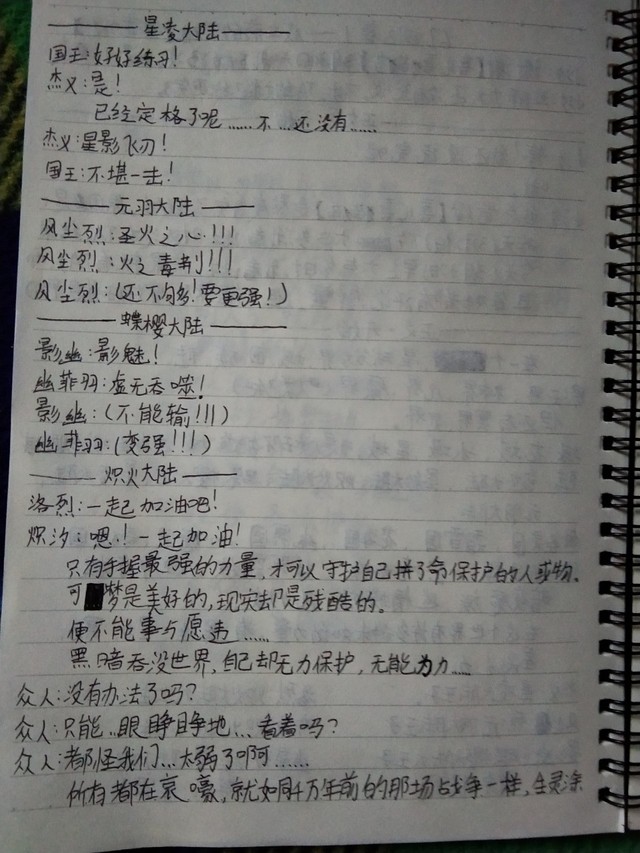 ——星凌大陆——
国王:好好练习!
杰义:是!
已经定格了呢……不…还没有……
杰义:星影飞刃!
国王:不堪一击!
——元羽大陆——
风尘烈:圣火之心!!!
风尘烈:火之毒荆!!!
风尘烈:(还不够!要更强!)
——蝶樱大陆——
影幽:影魅!
幽菲羽:虚无吞噬!
影幽:(不能输!!!)
幽菲羽:(变强!!!)
——炽火大陆——
洛烈:一起加油吧!
炽汐:嗯!一起加油!
只有手握最强的力量,才可以守护自己拼了命保护的人或物。
可梦是美好的,现实却是残酷的。
便不能事与愿违……
黑暗吞没世界,自己却无力保护,无能为力……
众人:没有办法了吗?
众人:只能…眼睁睁地…看着吗?
众人:都怪我们…太弱了啊……
所有都在哀嚎,就如同千万年前的那场战争一样,生灵涂